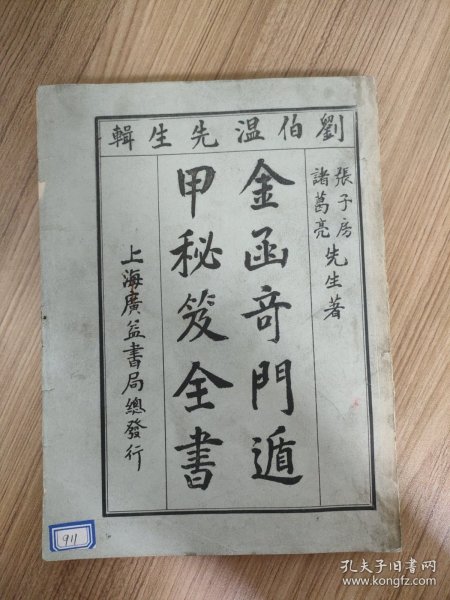 劉伯温先生輯
張子房
諸葛亮
先生著
金函奇門遁
甲秘笈全書
上海廣益書局總發行
911
孔夫子旧书网
www.kongfz.com